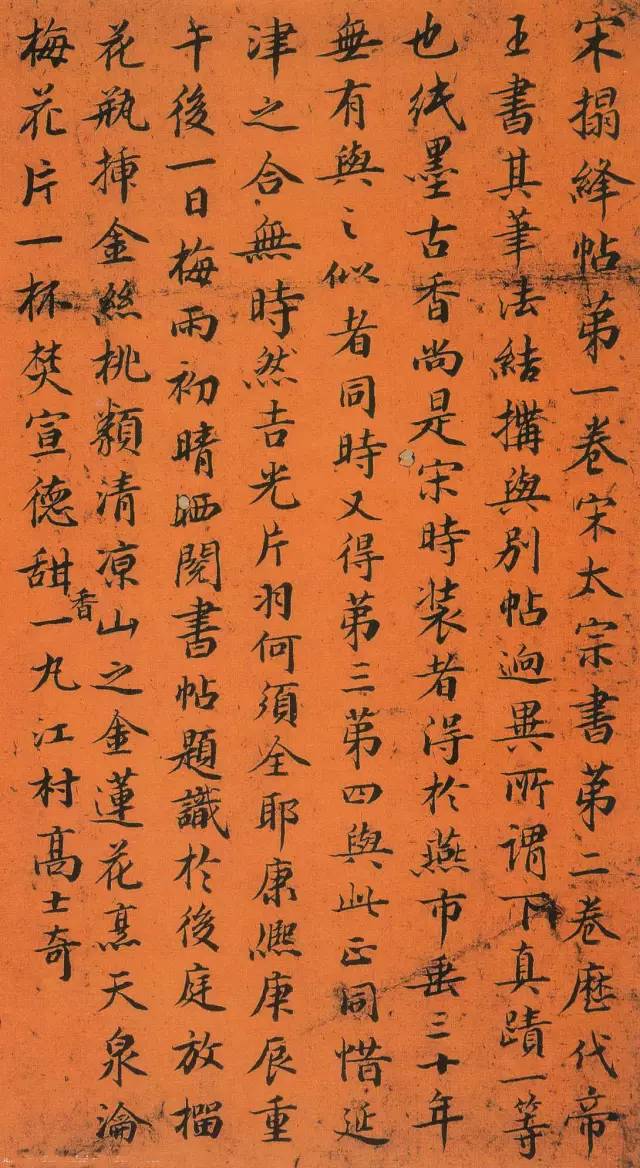 宋搨絳帖第一卷宋太宗書第二卷歷代帝
王書其筆法結搆與別帖逈異所謂下真蹟一等
也紙墨古香尚是宋時装者得於燕市垂三十年
無有與之似者同時又得第三第四與此正同惜延
津之合無時然吉光片羽何須全耶康熙庚辰重
午後一日梅雨初晴晒閱書帖題識於後庭放榴
花瓶揷金絲桃纇清涼山之金蓮花烹天泉瀹
梅花片一杯焚宣德甜香一丸江村高士奇